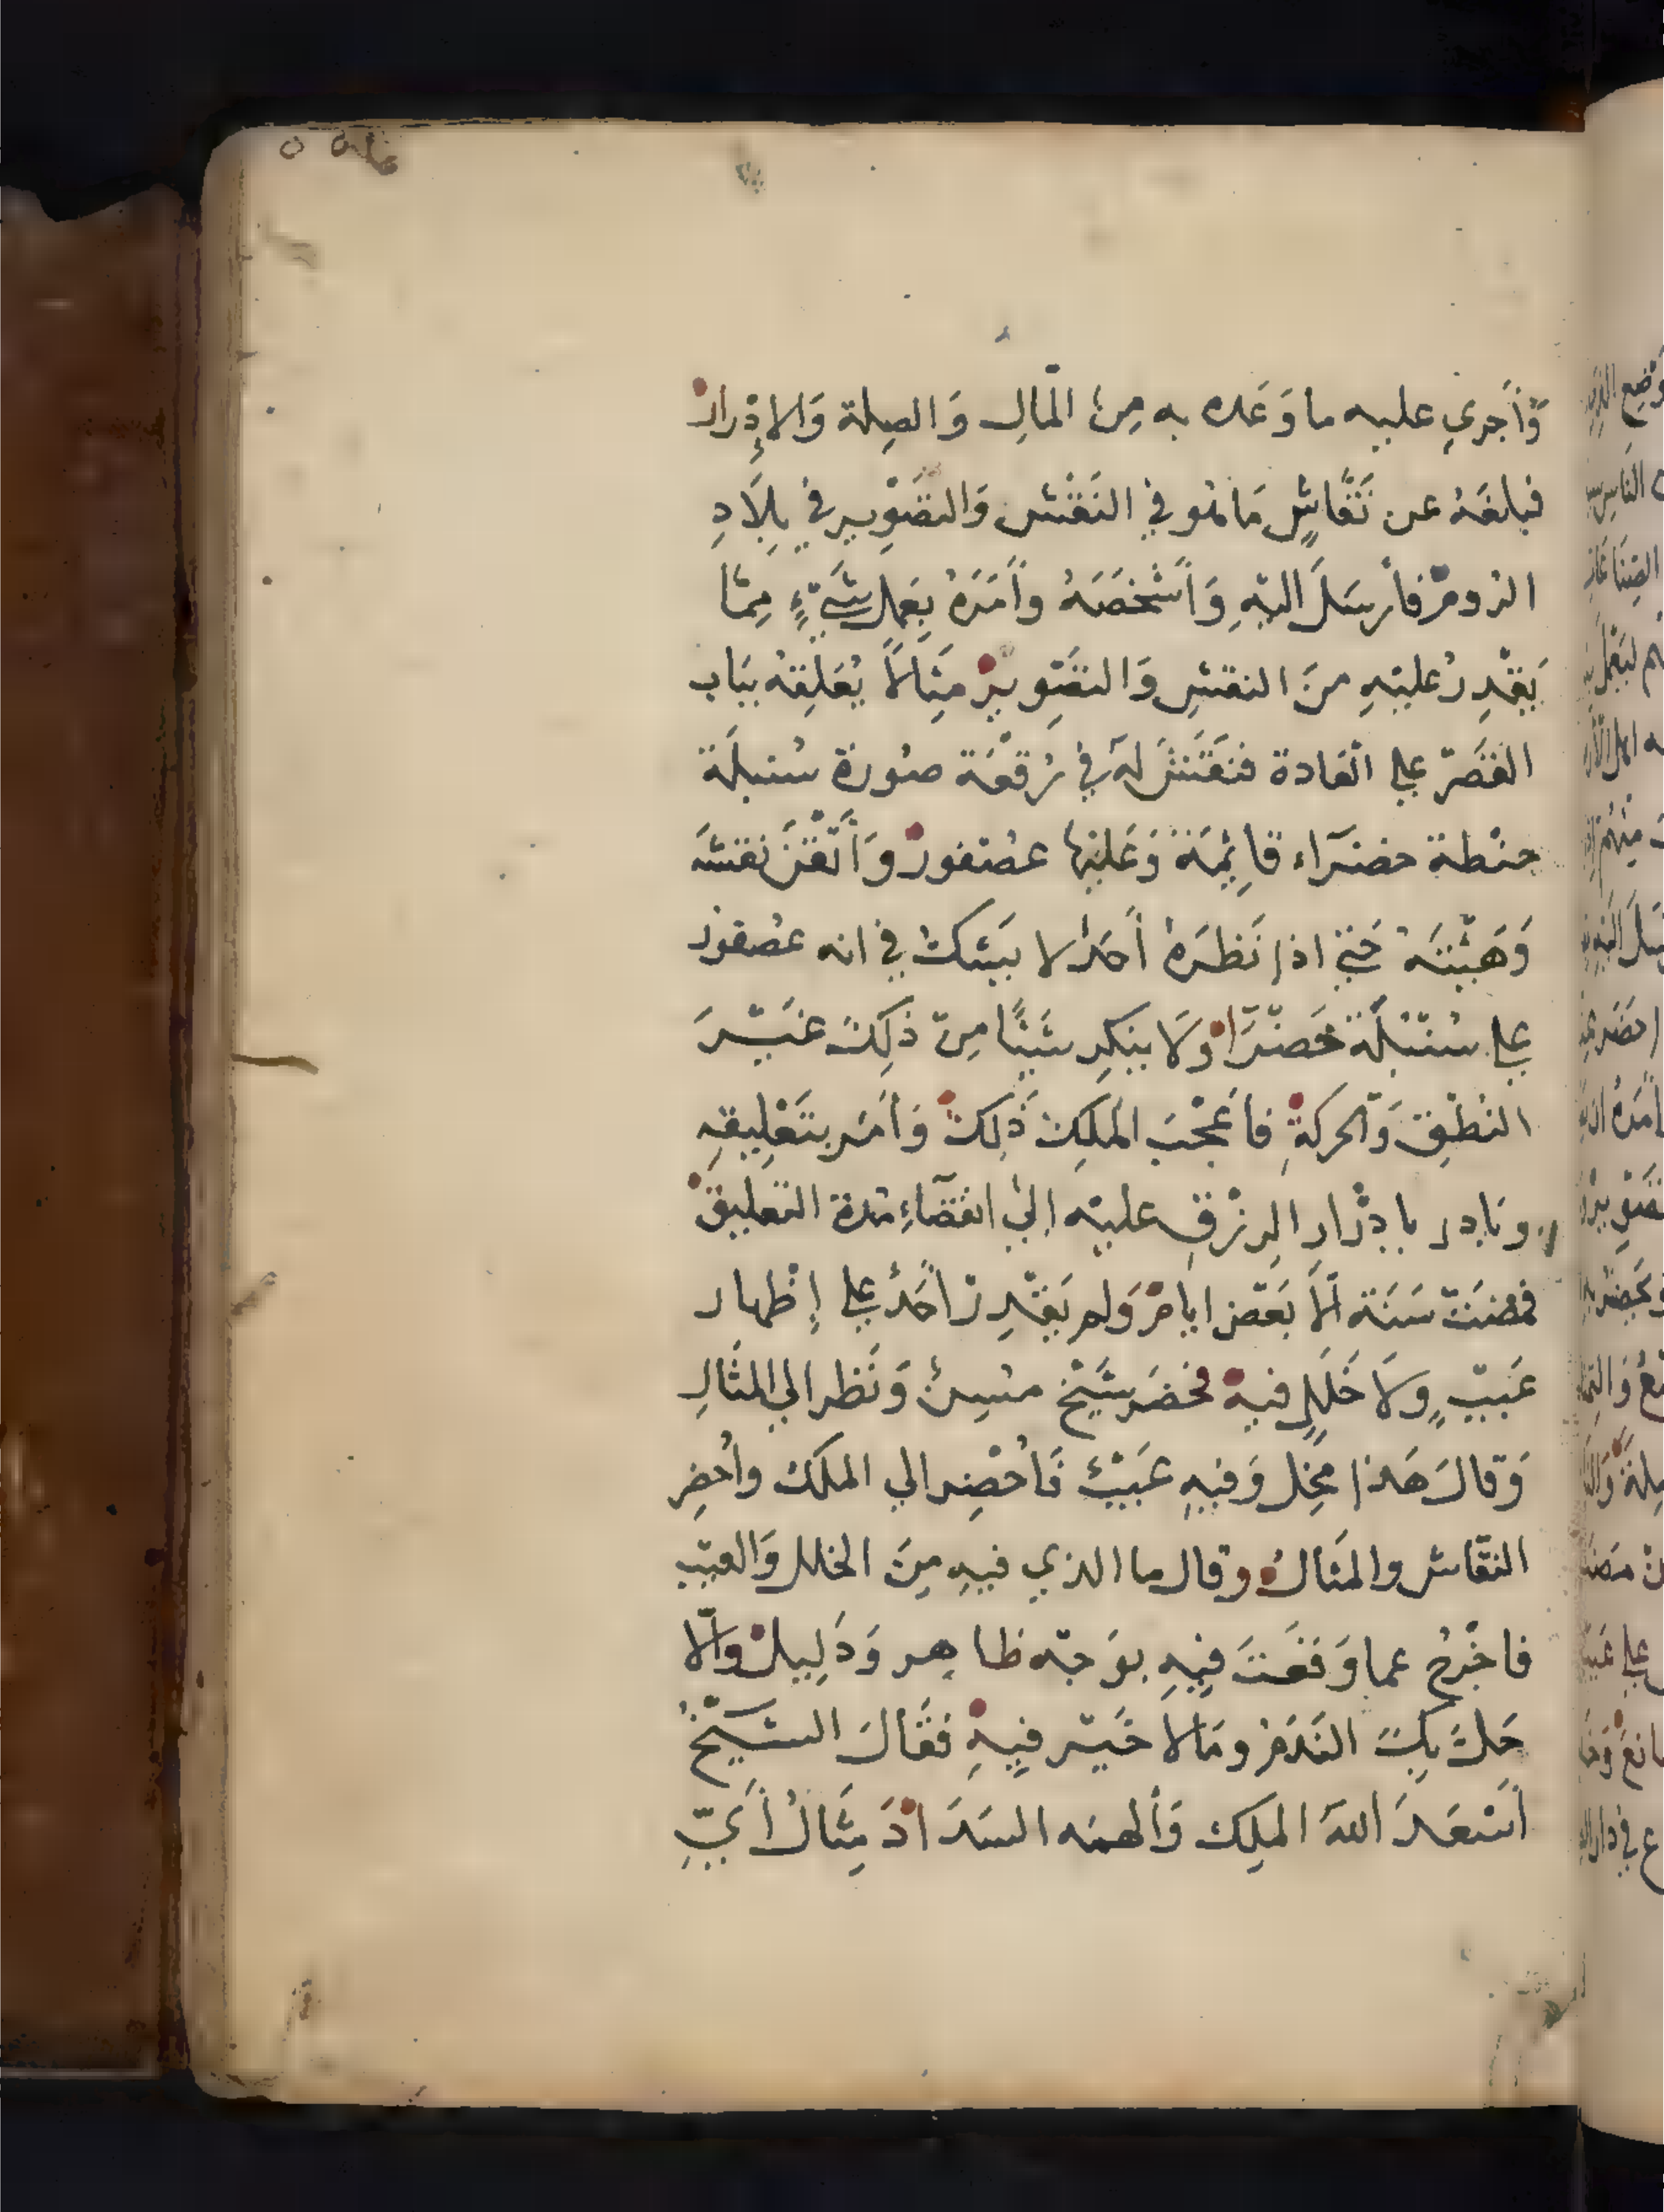 وَأَجري عليه ما وَعَده به مِنَ المَالِ وَالصِلة وَالإِدْرارْ
فبلغَهُ عن نَقَّاشٍ مَاهُو في النَقْش وَالتصْوِير في بِلَادِ
الرُومْ فأرسَلَ اليْهِ وَأَشْخَصَهُ وأَمَرَهُ بِعَمل شَيْءٍ مِمَّا
يَقْدِرُ عليْهِ مِنَ النقشِ وَالتصْوِيرْ مِثَالًا يُعَلِقهُ بِبَاب
القَصْرْ علي العَادة فنَقَشَ لَهُ في رُقعَة صُورة سُنبلَة
حنْطة خضرَآء قَايِمَة وَعَليْها عصْفورْ وَأَتْقَنَ نَقشَهُ
وَهَيْئتَهُ حَتي اذا نَظَرَهُ أَحَدْ لا يَشكْ في انه عصْفورْ
علي سُنْبُلَة خَضْرَاْ وَلَا ينكِر شَيْئًا مِنْ ذلِكَ غَيْرَ
النُطْقِ وَالحركةِ فأعْجَبَ المَلِكَ ذَلِكْ وَأمَر بتَعْلِيقهِ
وبَادر بِادْرَارِ الرِزْقِ عليْه إلي انقضَآءِ مُدة التعليقْ
فمضَتْ سَنَة الّا بَعْض ايامْ وَلم يَقْدِرْ أَحَدٌ علي إظْهار
عَيْبٍ وَلَا خَلَلٍ فيهْ فحضَر شَيْخ مُسِنٌ وَنَظر الي المثَالِ
وَقالَ هَذا مُخِل وَفيهِ عَيْبٌ فَأُحْضِر الي الملك وأُحضِر
النقّاش والمثَالْ وقال ما الذي فيهِ مِنَ الخلل وَالعيْب
فاخْرُج عما وَقَعْتَ فِيهِ بوَجْه ظاهِر وَدَلِيلْ وَالّا
حَلَّ بِكَ النَدَمْ ومَا لا خَيْر فِيهِ فقَالَ الشيْخُ
أَسْعَدَ اللهُ المَلِك وَأَلهمَه السَدَادْ مِثَالُ أَيِّ